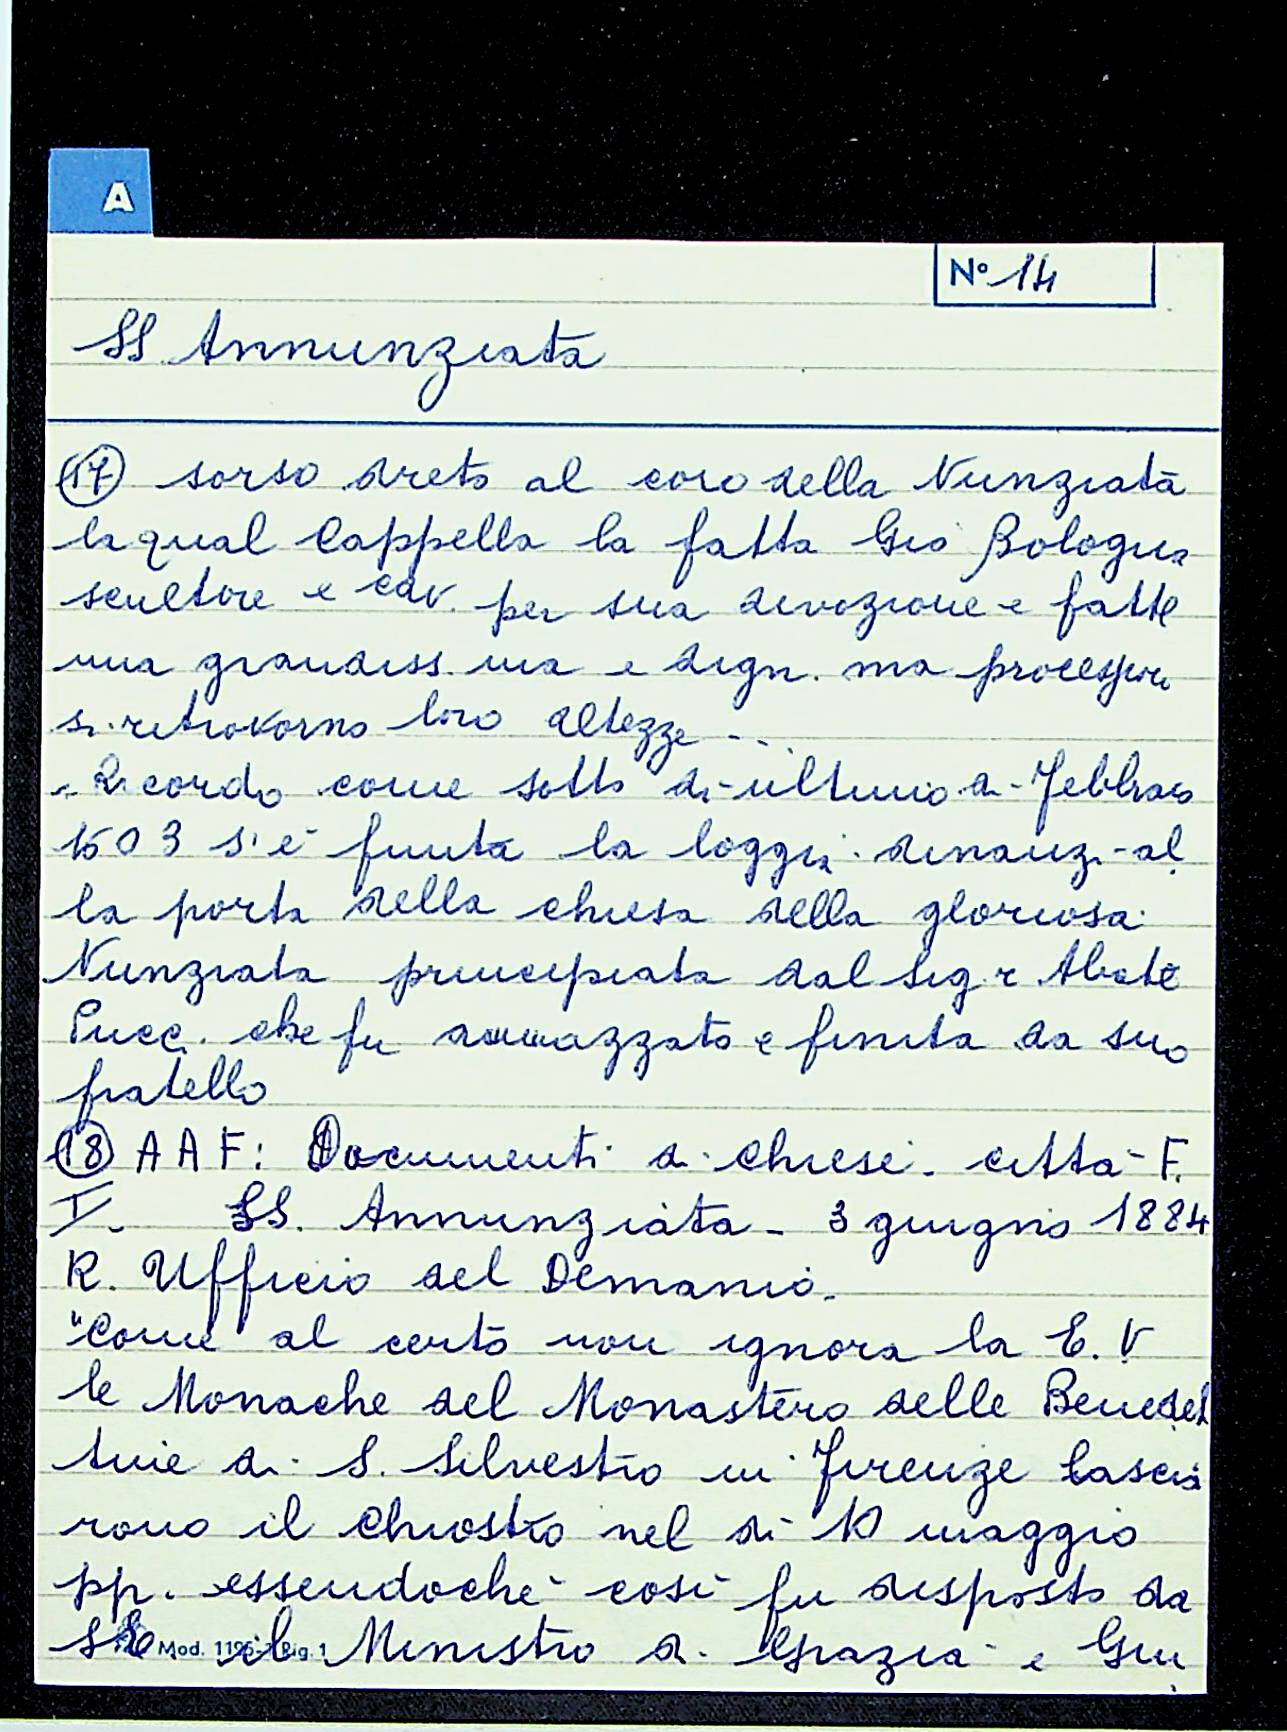 A
N° 14
SS Annunziata
(17) sorso dreto al coro della Nunziata
la qual Cappella la fatta Gio Bologna
scultore e cav. per sua divozione e fatte
una grandiss ma e dign. ma processione
si ritrovorno loro altezze ...
" Ricordo come sotto di ultimo di Febbraio
1603 s'è finita la loggia dinanzi al
la porta della chiesa della gloriosa
Nunziata principiata dal Sig r Abate
Pucci che fu ammazzato e finita da suo
fratello
(18) AAF: Documenti di chiese. città F.
I. SS. Annunziata - 3 giugno 1884
R. Ufficio del Demanio.
"Come al certo non ignora la E. V
le Monache del Monastero delle Benedet
tine di S. Silvestro in Firenze lascia
rono il chiostro nel dì 10 maggio
pp. essendoché così fu disposto da
SE il Ministro di Grazia e Giu
Mod. 1196-1 Rig. 1